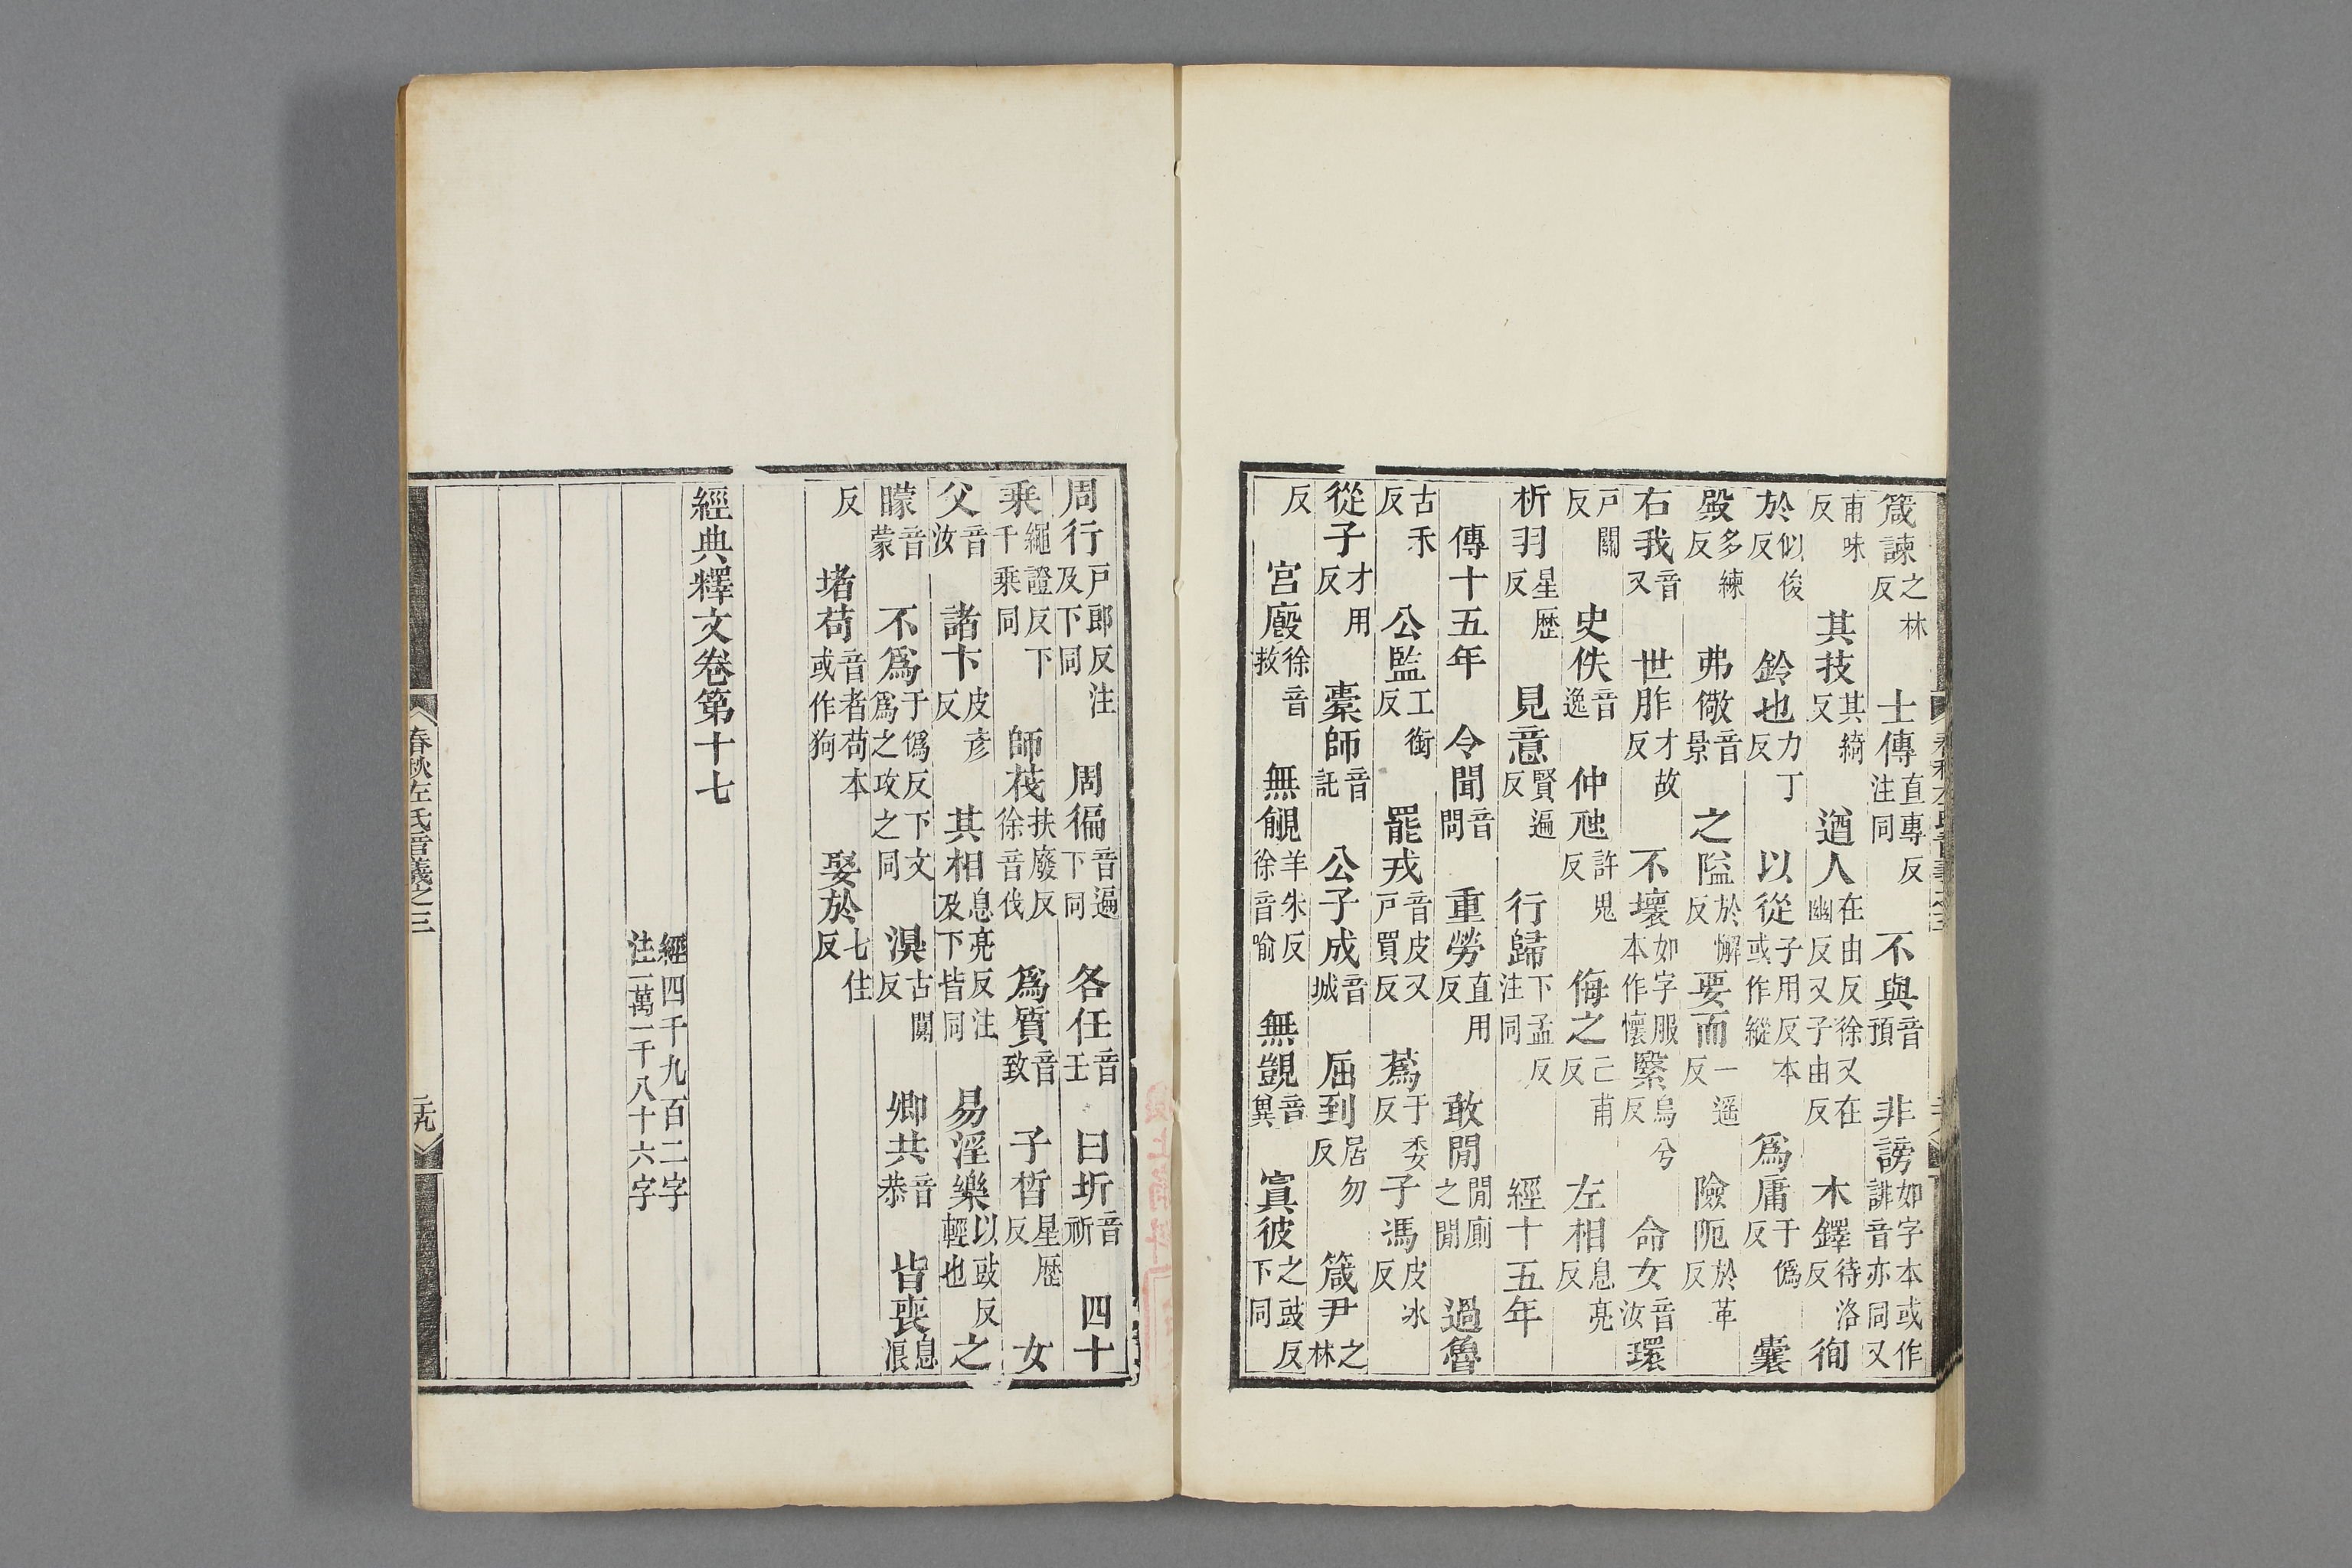 箴諫之林反士傳直專反注同不與音預非謗如字本或作誹音亦同又
甫味反其技其綺反遒人在由反徐又在幽反又子由反木鐸待洛反徇
於似俊反鈴也力丁反以從子用反本或作縱爲庸于僞反囊
殿多練反弗儆音景之隘於懈反要而一遥反險阨於革反
右我音又世胙才故反不壞如字服本作懷繄烏兮反命女音汝環
戸關反史佚音逸仲虺許鬼反侮之亡甫反左相息亮反
析羽星歷反見意賢遍反行歸下孟反注同經十五年
傳十五年令聞音問重勞直用反敢閒閒廁之閒過魯
古禾反公監工銜反罷戎音皮又戸買反蒍于委反子馮皮冰反
從子才用反橐師音託公子成音城屈到居勿反箴尹之林
反宮廏徐音救無覦羊朱反徐音喻無覬音冀寘彼之豉反下同
周行戸郎反注及下同周徧音遍下同各任音壬曰圻音祈四十
乘繩證反下千乘同師茷扶廢反徐音伐爲質音致子晳星歷反女
父音汝諸卞皮彦反其相息亮反注及下皆同易淫樂以豉反輕也之
矇音蒙不爲于僞反下文爲之攻之同淏古闃反卿共音恭皆喪息浪
反堵苟音者苟本或作狗娶於七住反
經典釋文卷第十七
經四千九百二字
注一萬一千八十六字
春秋左氏音義之三
二十九